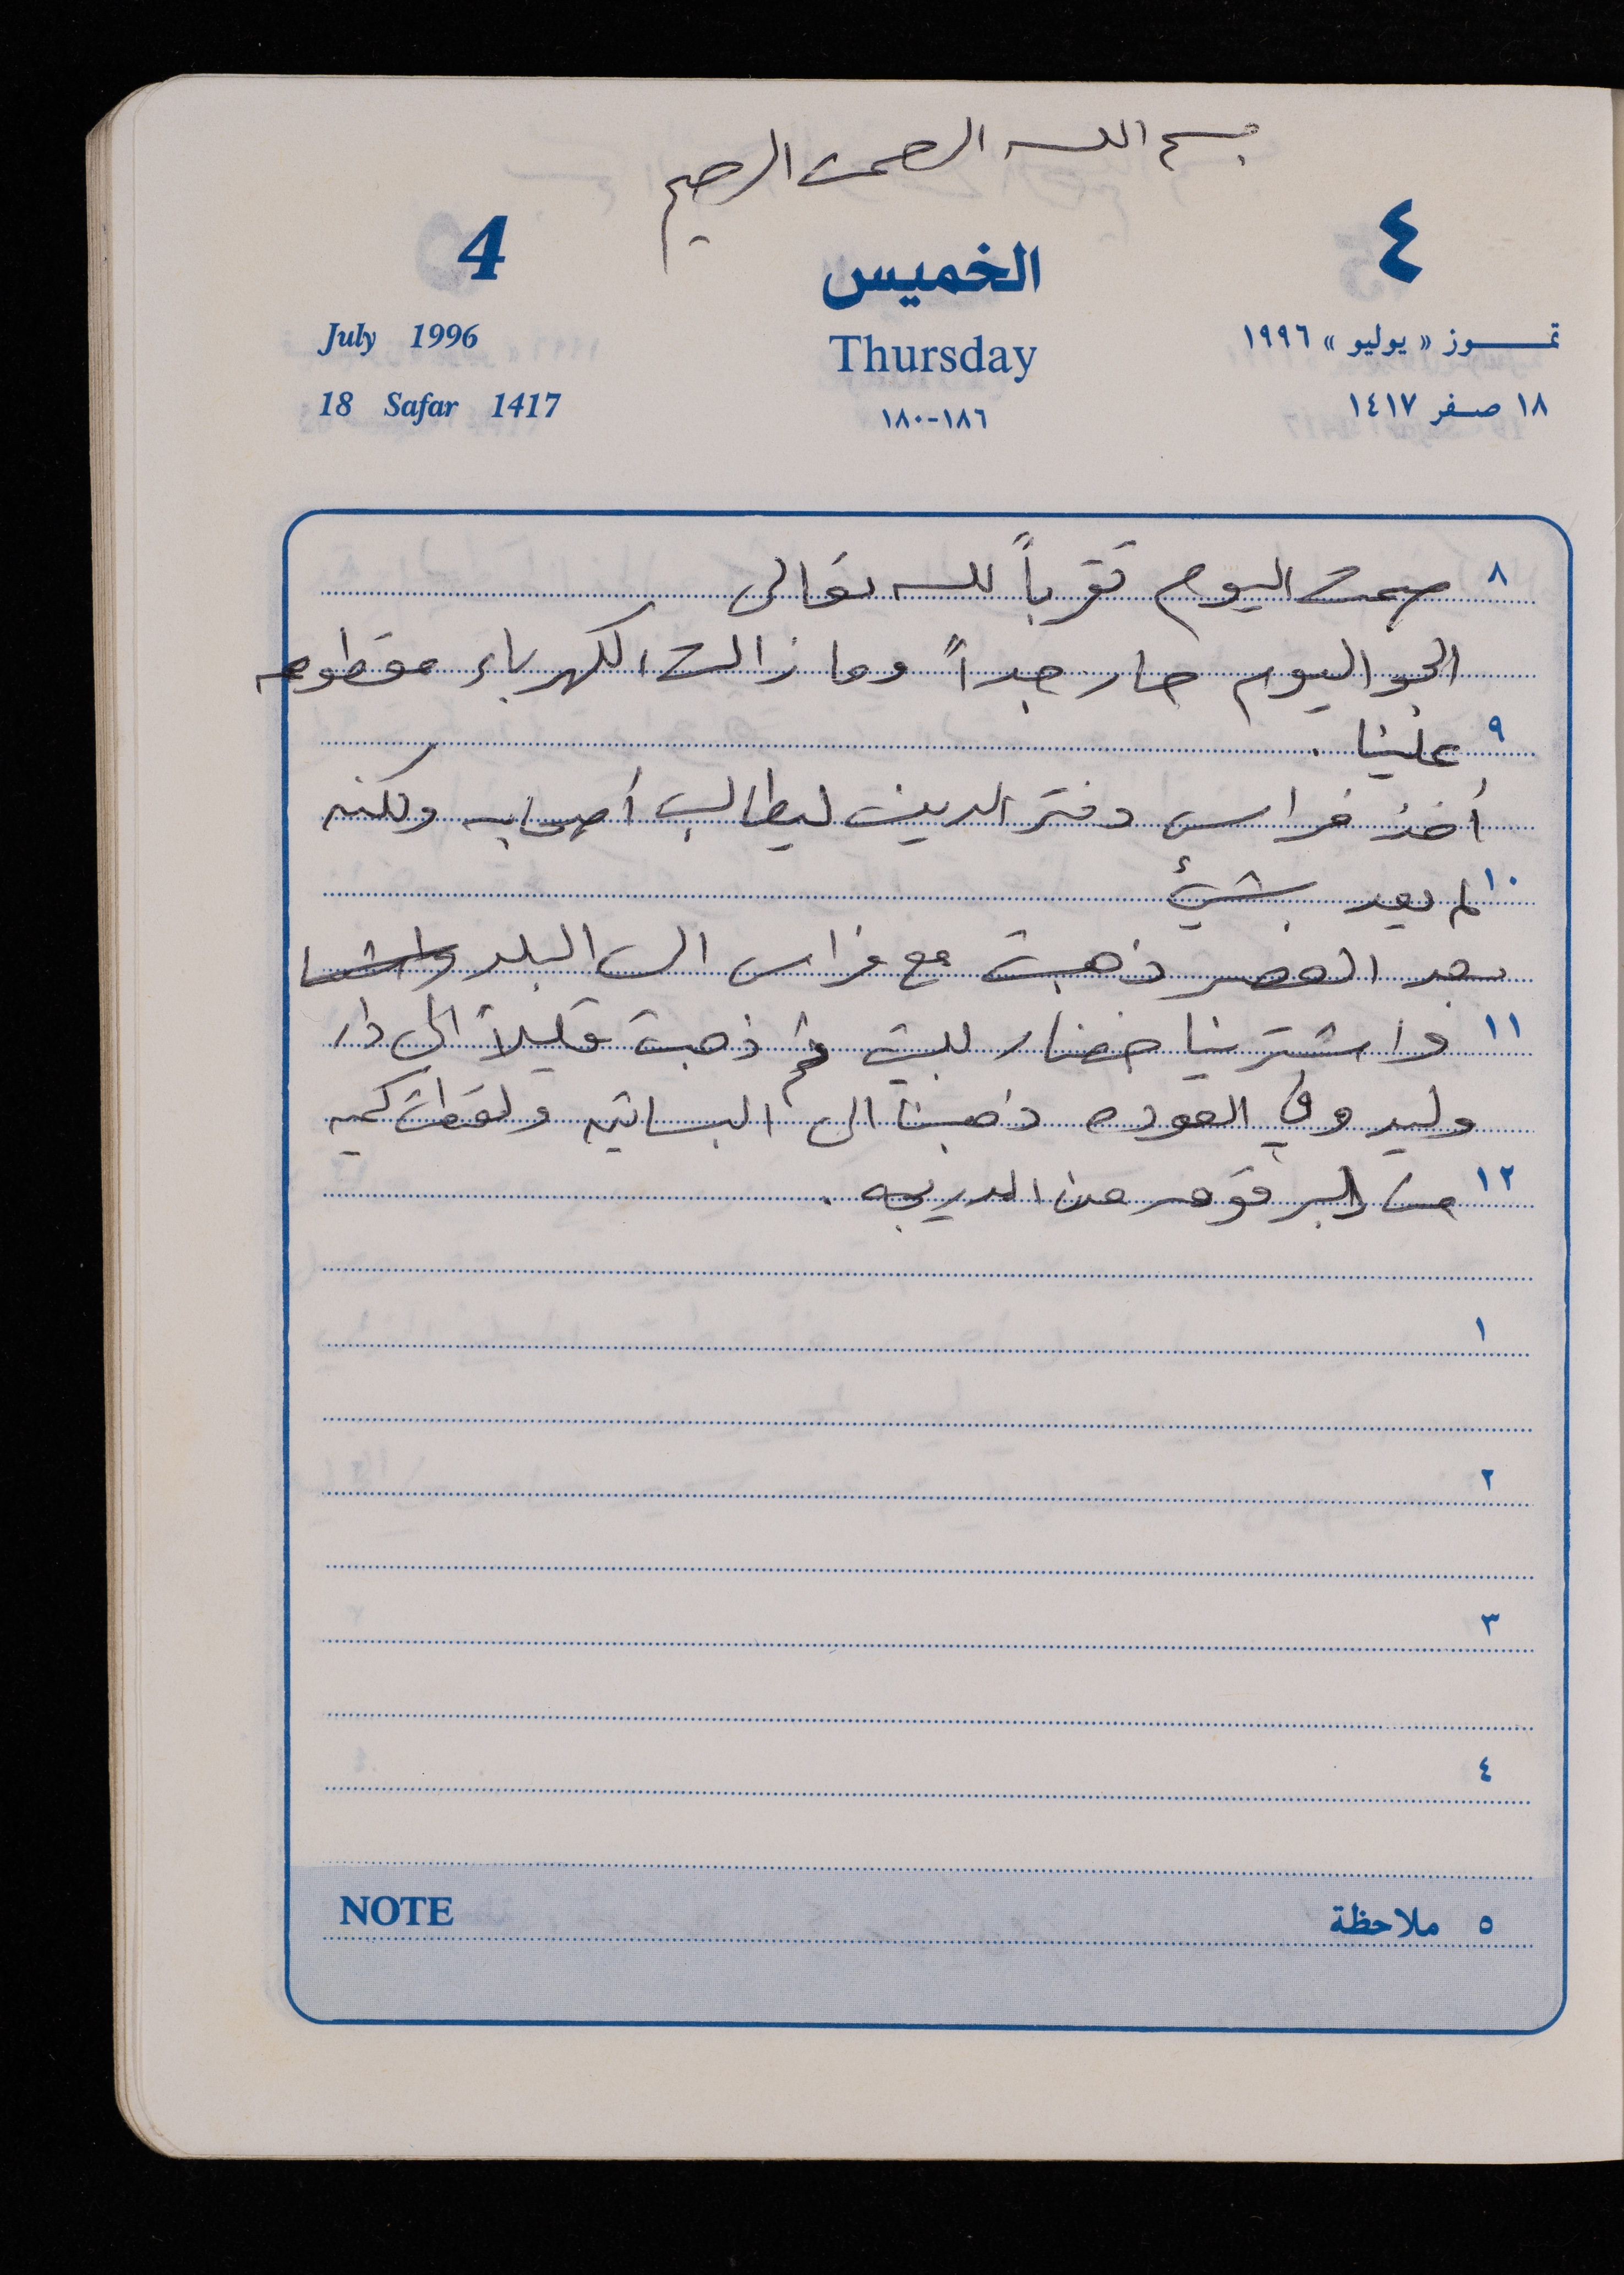 بسم الله الرحمن الرحيم
4 الخميس ٤
July 1996 Thursday تمـــوز « يوليو » ١٩٩٦
18 Safar 1417 ١٨٦-١٨٠ ١٨ صـفر ١٤١٧
٨ صمت اليوم تقرباً لله تعالى
الجو اليوم حار جداً وما زالت الكهرباء مقطوعه
٩ علينا .
أخذ فراس دفتر الدين ليطالب أصحابه ولكنه
١٠ لم يعد بشيئ
بعد العصر ذهبت مع فراس الى البلد
١١ واشترينا خضار للبيت ثم ذهبت قليلاً الى دار
وليد وفي العوده ذهبنا الى البساتين ولقطت كميه
١٢ من البرقوق من الدريجه .
١
٢
٣
٤
NOTE ٥ ملاحظة